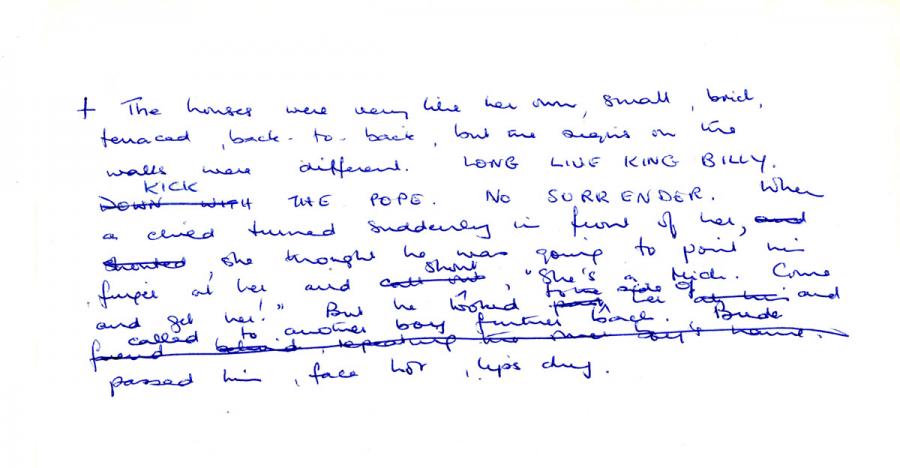 + The houses were very like her own, small, brick,
terraced, back-to-back, but the signs on the
walls were different. LONG LIVE KING BILLY.
KICK
DOWN WITH THE POPE. NO SURRENDER. When
a child turned suddenly in front of her, and
shouted, she thought he was going to point his
shout
finger at her and call out, "She's a Mick. Come
to the side of
and get her!" But he looked past her at his and
called to another boy further back. Bride
friend behind, repeating the same boy's name.
passed him, face hot, lips dry.